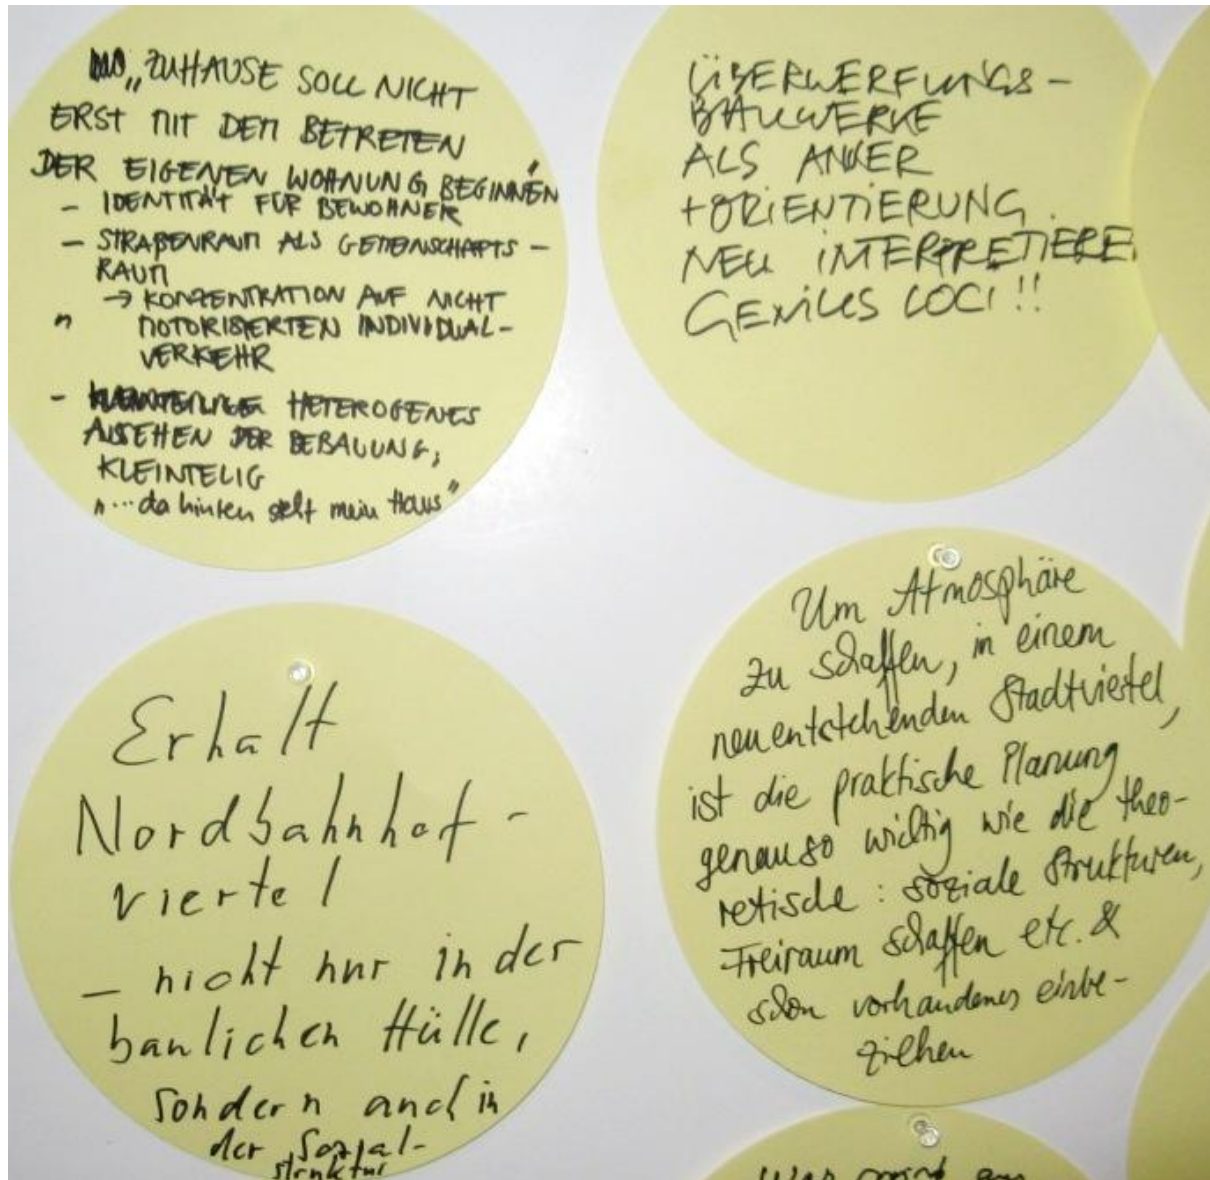 „ZUHAUSE SOLL NICHT
ERST MIT DEM BETRETEN
DER EIGENEN WOHNUNG BEGINNEN"
- IDENTITÄT FÜR BEWOHNER
- STRAßENRAUM ALS GEMEINSCHAFTS-
RAUM
→ KONZENTRATION AUF NICHT
" MOTORISIERTEN INDIVIDUAL-
VERKEHR
- HETEROGENES
AUSSEHEN DER BEBAUUNG,
KLEINTELIG
"...da hinten steht mein Haus"
ÜBERWERFUNGS-
BAUWERKE
ALS ANKER
+ORIENTIERUNG
NEU INTERPRETIERE
GENIUS LOCI!!
Erhalt
Nordbahnhof-
viertel
- nicht nur in der
baulichen Hülle,
sondern auch in
der Sozial-
struktur
Um Atmosphäre
zu schaffen, in einem
neuentstehenden Stadtviertel,
ist die praktische Planung
genauso wichtig wie die theo-
retische: soziale Strukturen,
Freiraum schaffen etc. &
schon vorhandenes einbe-
ziehen